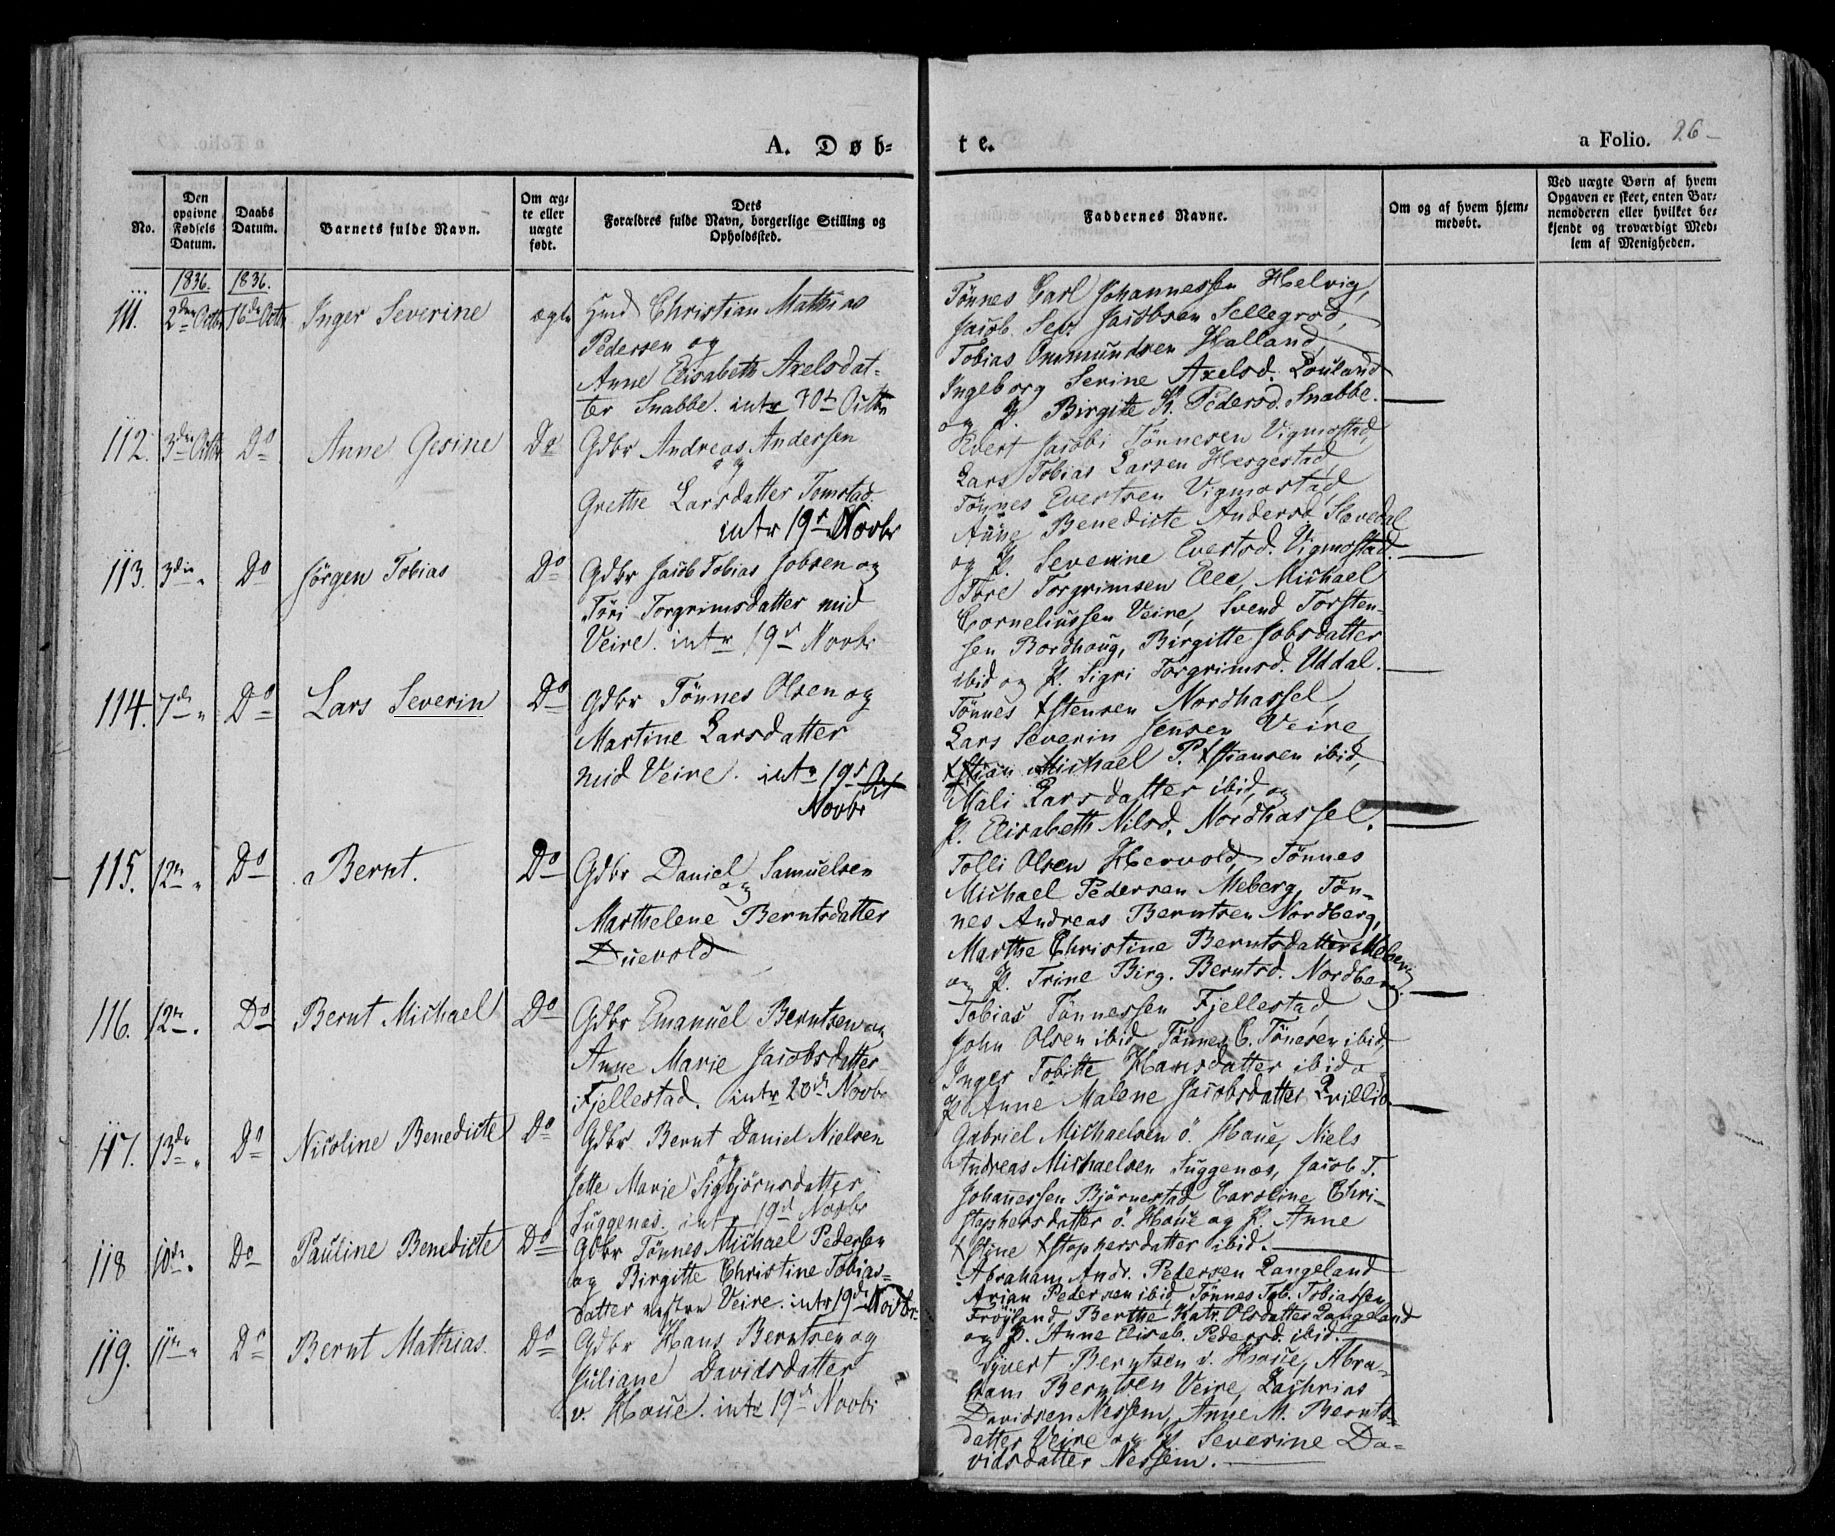 A. Døb-
te.
a Folio. 26-
No.
Den opgivne Fødsels Datum.
Daabs Datum.
Barnets fulde Navn.
Om ægte eller uægte født.
Dets Forældres fulde Navn, borgerlige Stilling og Opholdssted.
Faddernes Navne.
Om og af hvem hjemmedøbt.
Ved uægte Børn af hvem Opgaven er skeet, enten Barnemoderen eller hvilket bekjendt og troværdigt Medlem af Menigheden.
1836. 1836.
111. 2den Octbr 16de Octbr Inger Severine ægte
Hmd Christian Mathias
Pedersen og
Anne Elisabeth Axelsdat-
ter Snabbe. intr 30te Octbr
Tønnes Carl Johannessen Helvig,
Jacob Sev. Jacobsen Sellegrod,
Tobias Ommundsen Halland,
Ingeborg Serine Axelsd. Louland
og P. Birgite K. Pedersd. Snabbe.
112. 3die Octbr Do Anne Gesine Do
Gdbr Andreas Andersen
og
Grethe Larsdatter Tomstad.
intr 19de Novbr
Evert Jacobi Tønnesen Vigmostad,
Lars Tobias Larsen Hergestad
Tønnes Evertsen Vigmostad
Anne Benedicte Andersd. Slævedal
og P. Severine Evertsd. Vigmostad.
113. 3die " Do Jørgen Tobias Do
Gdbr Jacob Tobias Jobsen og
Tiri Torgrimsdatter mid
Veire. intr 19de Novbr
Tore Torgrimsen Elle, Michael
Corneliussen Veire, Svend Torsten-
sen Bordhoug, Birgitte Jobsdatter
ibid og P. Sigri Torgrimsd. Uddal.
114. 7de " Do Lars Severin Do
Gdbr Tønnes Olsen og
Martine Larsdatter
mid Veire. intr 19de Oct
Novbr
Tønnes Xstensen Nordhassel,
Lars Severin Jensen Veire,
Xstian Michael P. Xstiansen ibid,
Mali Larsdatter ibid, og
P. Elisabeth Nilsd. Nordhassel.
115. 12te " Do Bernt. Do
Gdbr Daniel Samuelsen
og
Marthelene Berntsdatter
Duevold
Tolli Olsen Hervold, Tønnes
Michael Pedersen Meberg, Tøn-
nes Andreas Berntsen Nordberg,
Marthe Christine Berntsdatter Meberg
og P. Trine Birg. Berntsd. Nordberg.
116. 12te " Do Bernt Michael Do
Gdbr Emanuel Berntsen og
Anne Marie Jacobsdatter
Fjellestad. intr 20de Novbr
Tobias Tønnessen Fjellestad,
John Olsen ibid, Tønnes C. Tønesen ibid,
Inger Tobitte Hansdatter ibid o
P. Anne Malene Jacobsdatter Qvillio.
117. 13de " Do Nicoline Benedicte Do
Gdbr Bernt Daniel Nielsen
og
Jette Marie Sigbjørnsdatter
Luggenæs. intr 19de Novbr
Gabriel Michaelsen ö. Houe, Niels
Andreas Michaelsen Luggenæs, Jacob T.
Johannessen Bjørnestad Caroline Chri-
stophersdatter ö. Houe og P. Anne
Xstine Xstophersdatter ibid.
118 10de " Do Pauline Benedicte Do
Gdbr Tønnes Michael Pedersen
og Birgitte Christine Tobias-
datter vestre Veire. intr 19de Novbr.
Abraham Andr. Pedersen Langeland
Arian Pedersen ibid, Tønnes Tob. Tobiassen
Frøyland, Berthe Katr. Olsdatter Langeland
og P. Anne Elisab. Pedersd. ibid.
119. 11te " Do Bernt Mathias. Do
Gdbr Hans Berntsen og
Juliane Davidsdatter
v. Houe. intr 19de Novbr
Syvert Berntsen v. Houe, Abra-
ham Berntsen Veire, Zachrias
Davidsen Nessem, Anne M. Bernts-
datter Veire og P. Severine Da-
vidsdatter Nessem.